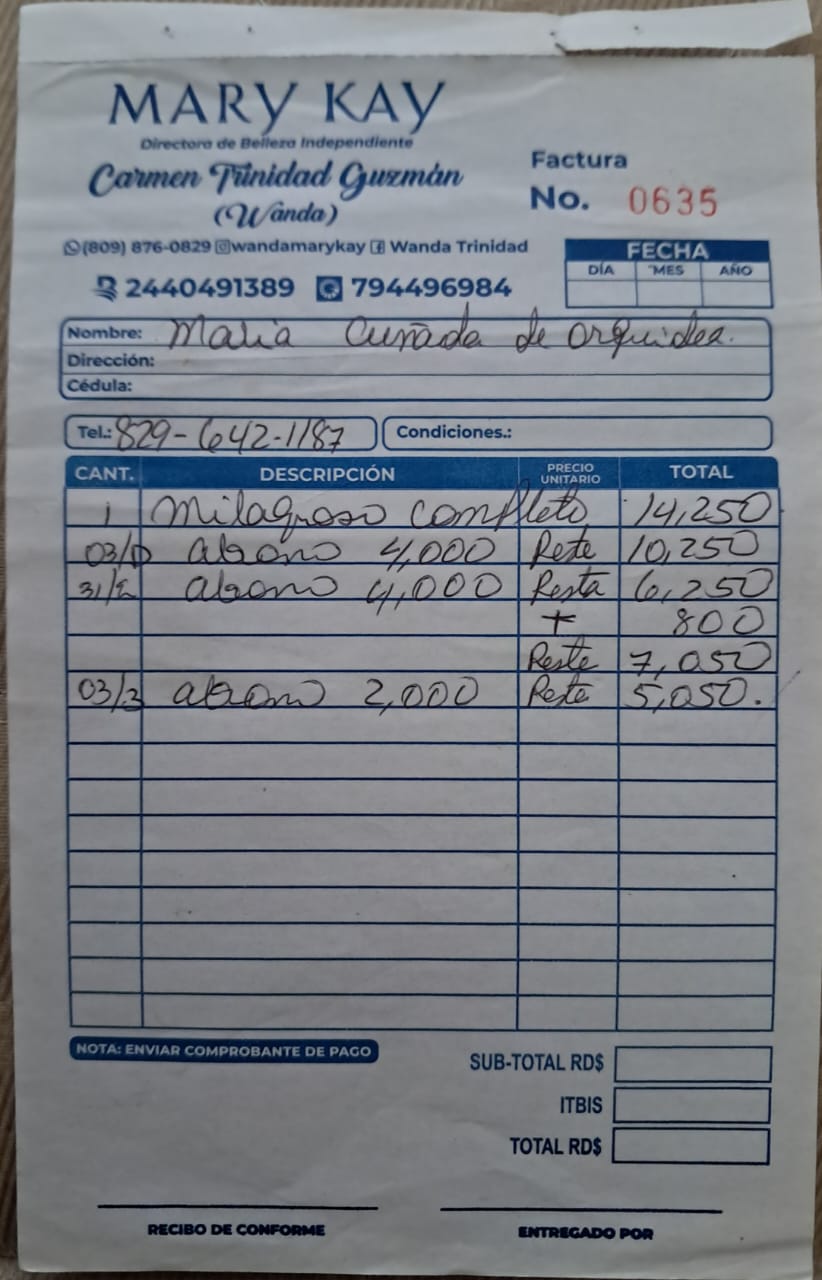 MARY KAY
Directora de Belleza Independiente
Carmen Trinidad Guzmán
(Wanda)
(809) 876-0829 wandamarykay Wanda Trinidad
2440491389 794496984
Factura
No. 0635
FECHA
DÍA MES AÑO
Nombre: Maria Cuñada de orquidea.
Dirección:
Cédula:
Tel.: 829-642-1187 Condiciones.:
CANT. DESCRIPCIÓN PRECIO UNITARIO TOTAL
1 Milagroso completo 14,250
abono 4,000 Resta 10,250
31/E abono 4,000 Resta 6,250
+ 800
Resta 7,050
03/3 abono 2,000 Resta 5,050.
NOTA: ENVIAR COMPROBANTE DE PAGO
SUB-TOTAL RD$
ITBIS
TOTAL RD$
RECIBO DE CONFORME ENTREGADO POR